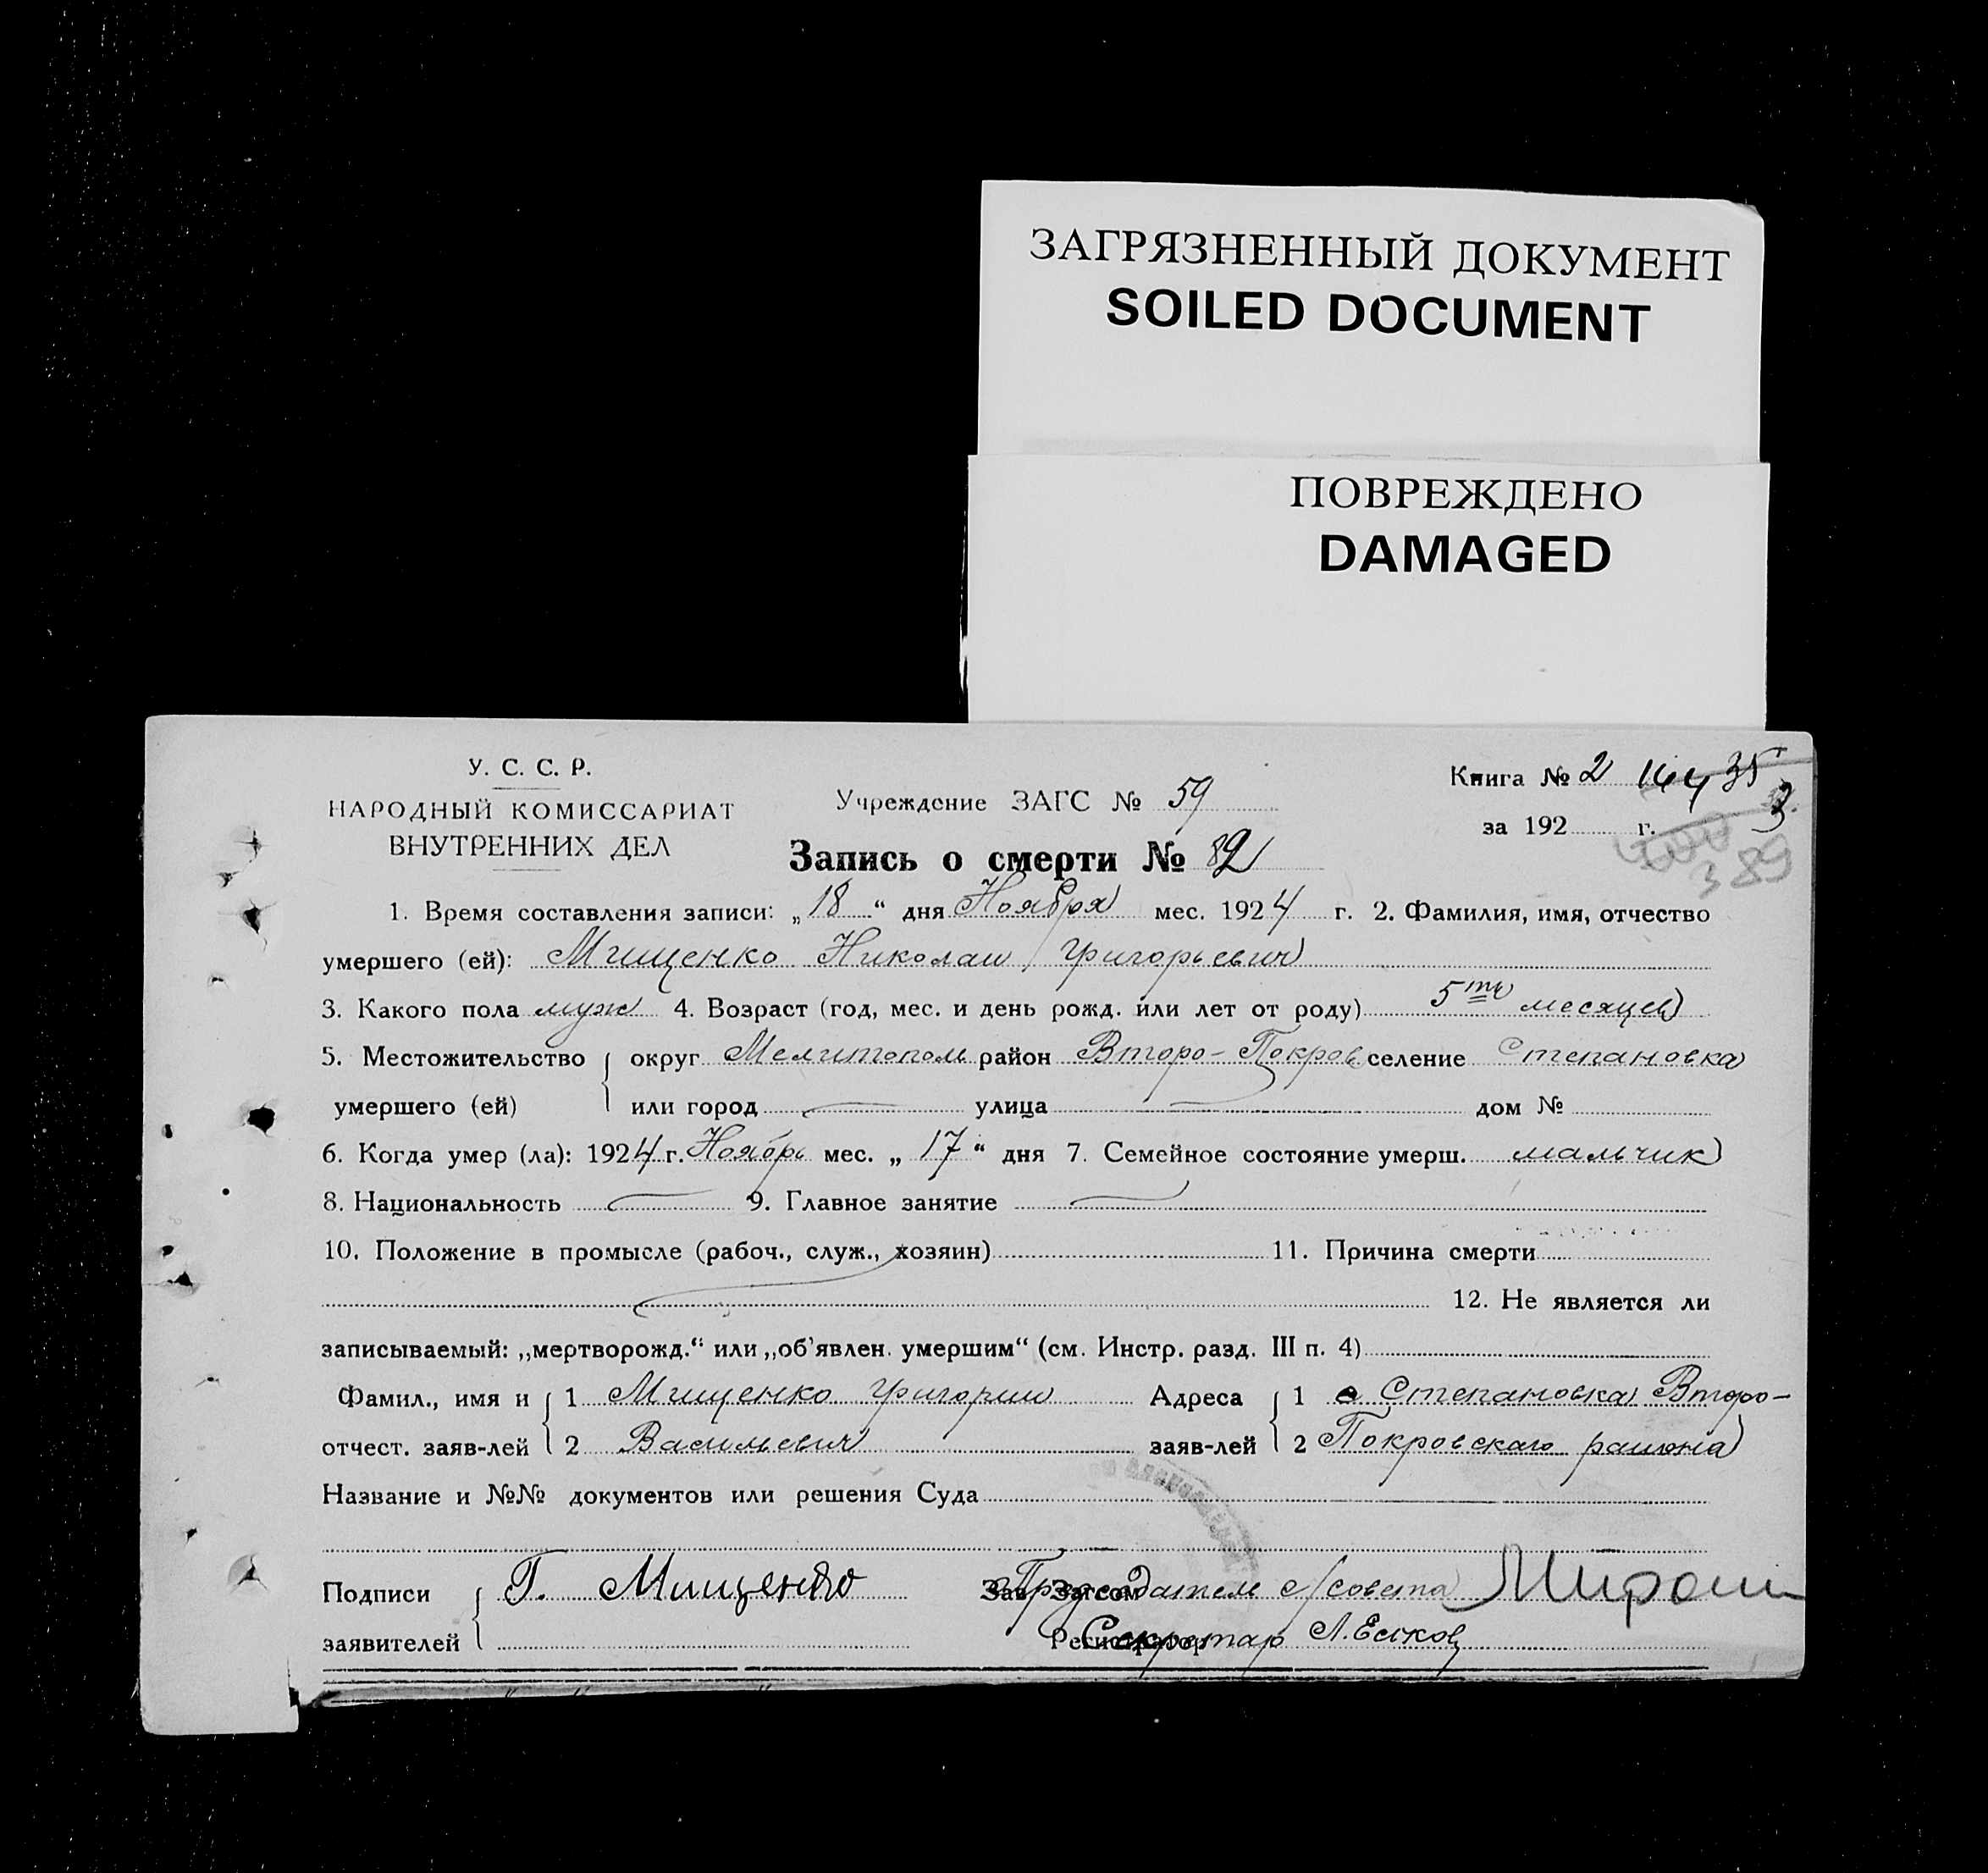 ЗАГРЯЗНЕННЫЙ ДОКУМЕНТ
SOILED DOCUMENT
ПОВРЕЖДЕНО
DAMAGED
У. С. С. Р.
НАРОДНЫЙ КОМИССАРИАТ
ВНУТРЕННИХ ДЕЛ
Учреждение ЗАГС № 59
Книга № 2 144 35
за 192 г. 3
389
Запись о смерти № 82
1. Время составления записи: „18“ дня Ноября мес. 1924 г. 2. Фамилия, имя, отчество
умершего (ей): Мищенко Николаи Григорьевич
3. Какого пола муж 4. Возраст (год, мес. и день рожд. или лет от роду) 5ти месяцев
5. Местожительство округ Мелитополь район Второ-Покров селение Степановка
умершего (ей) или город — улица — дом №
6. Когда умер (ла): 1924 г. Ноябрь мес. „17“ дня 7. Семейное состояние умерш. мальчик
8. Национальность — 9. Главное занятие —
10. Положение в промысле (рабоч., служ., хозяин) 11. Причина смерти
12. Не является ли
записываемый: „мертворожд.“ или „об'явлен. умершим“ (см. Инстр. разд. III п. 4)
Фамил., имя и 1 Мищенко Григории Адреса 1 с Степановка Второ-
отчест. заяв-лей 2 Васильевич заяв-лей 2 Покровскаго раиона
Название и №№ документов или решения Суда
Подписи Г. Мищенко Зав. Загсом Председатель с/совета
заявителей Регистратор Секретар